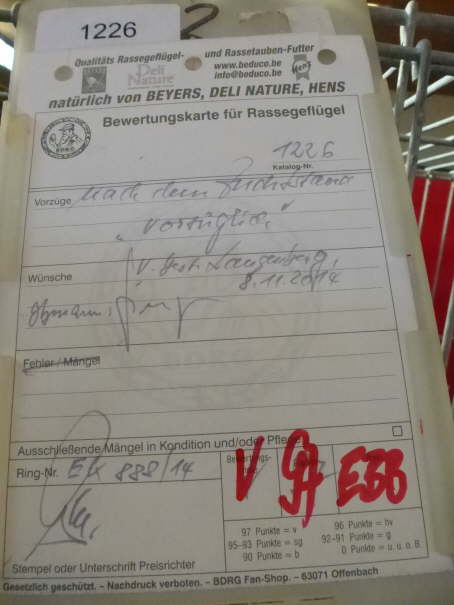 1226
2
Qualitäts Rassegeflügel- und Rassetauben-Futter
Deli Nature www.beduco.be
info@beduco.be Hens
natürlich von BEYERS, DELI NATURE, HENS
Bewertungskarte für Rassegeflügel
BDRG
1226
Katalog-Nr.
Vorzüge Nach dem Zuchtstand
"Vorzüglich"
Wünsche
8.11.2014
Fehler / Mängel
Ausschließende Mängel in Kondition und/oder Pflege
Ring-Nr. EK 888/14
V EBB
97 Punkte = v 96 Punkte = hv
95–93 Punkte = sg 92–91 Punkte = g
90 Punkte = b 0 Punkte = u. u. o. B.
Stempel oder Unterschrift Preisrichter
Gesetzlich geschützt. – Nachdruck verboten. – BDRG Fan-Shop. – 63071 Offenbach